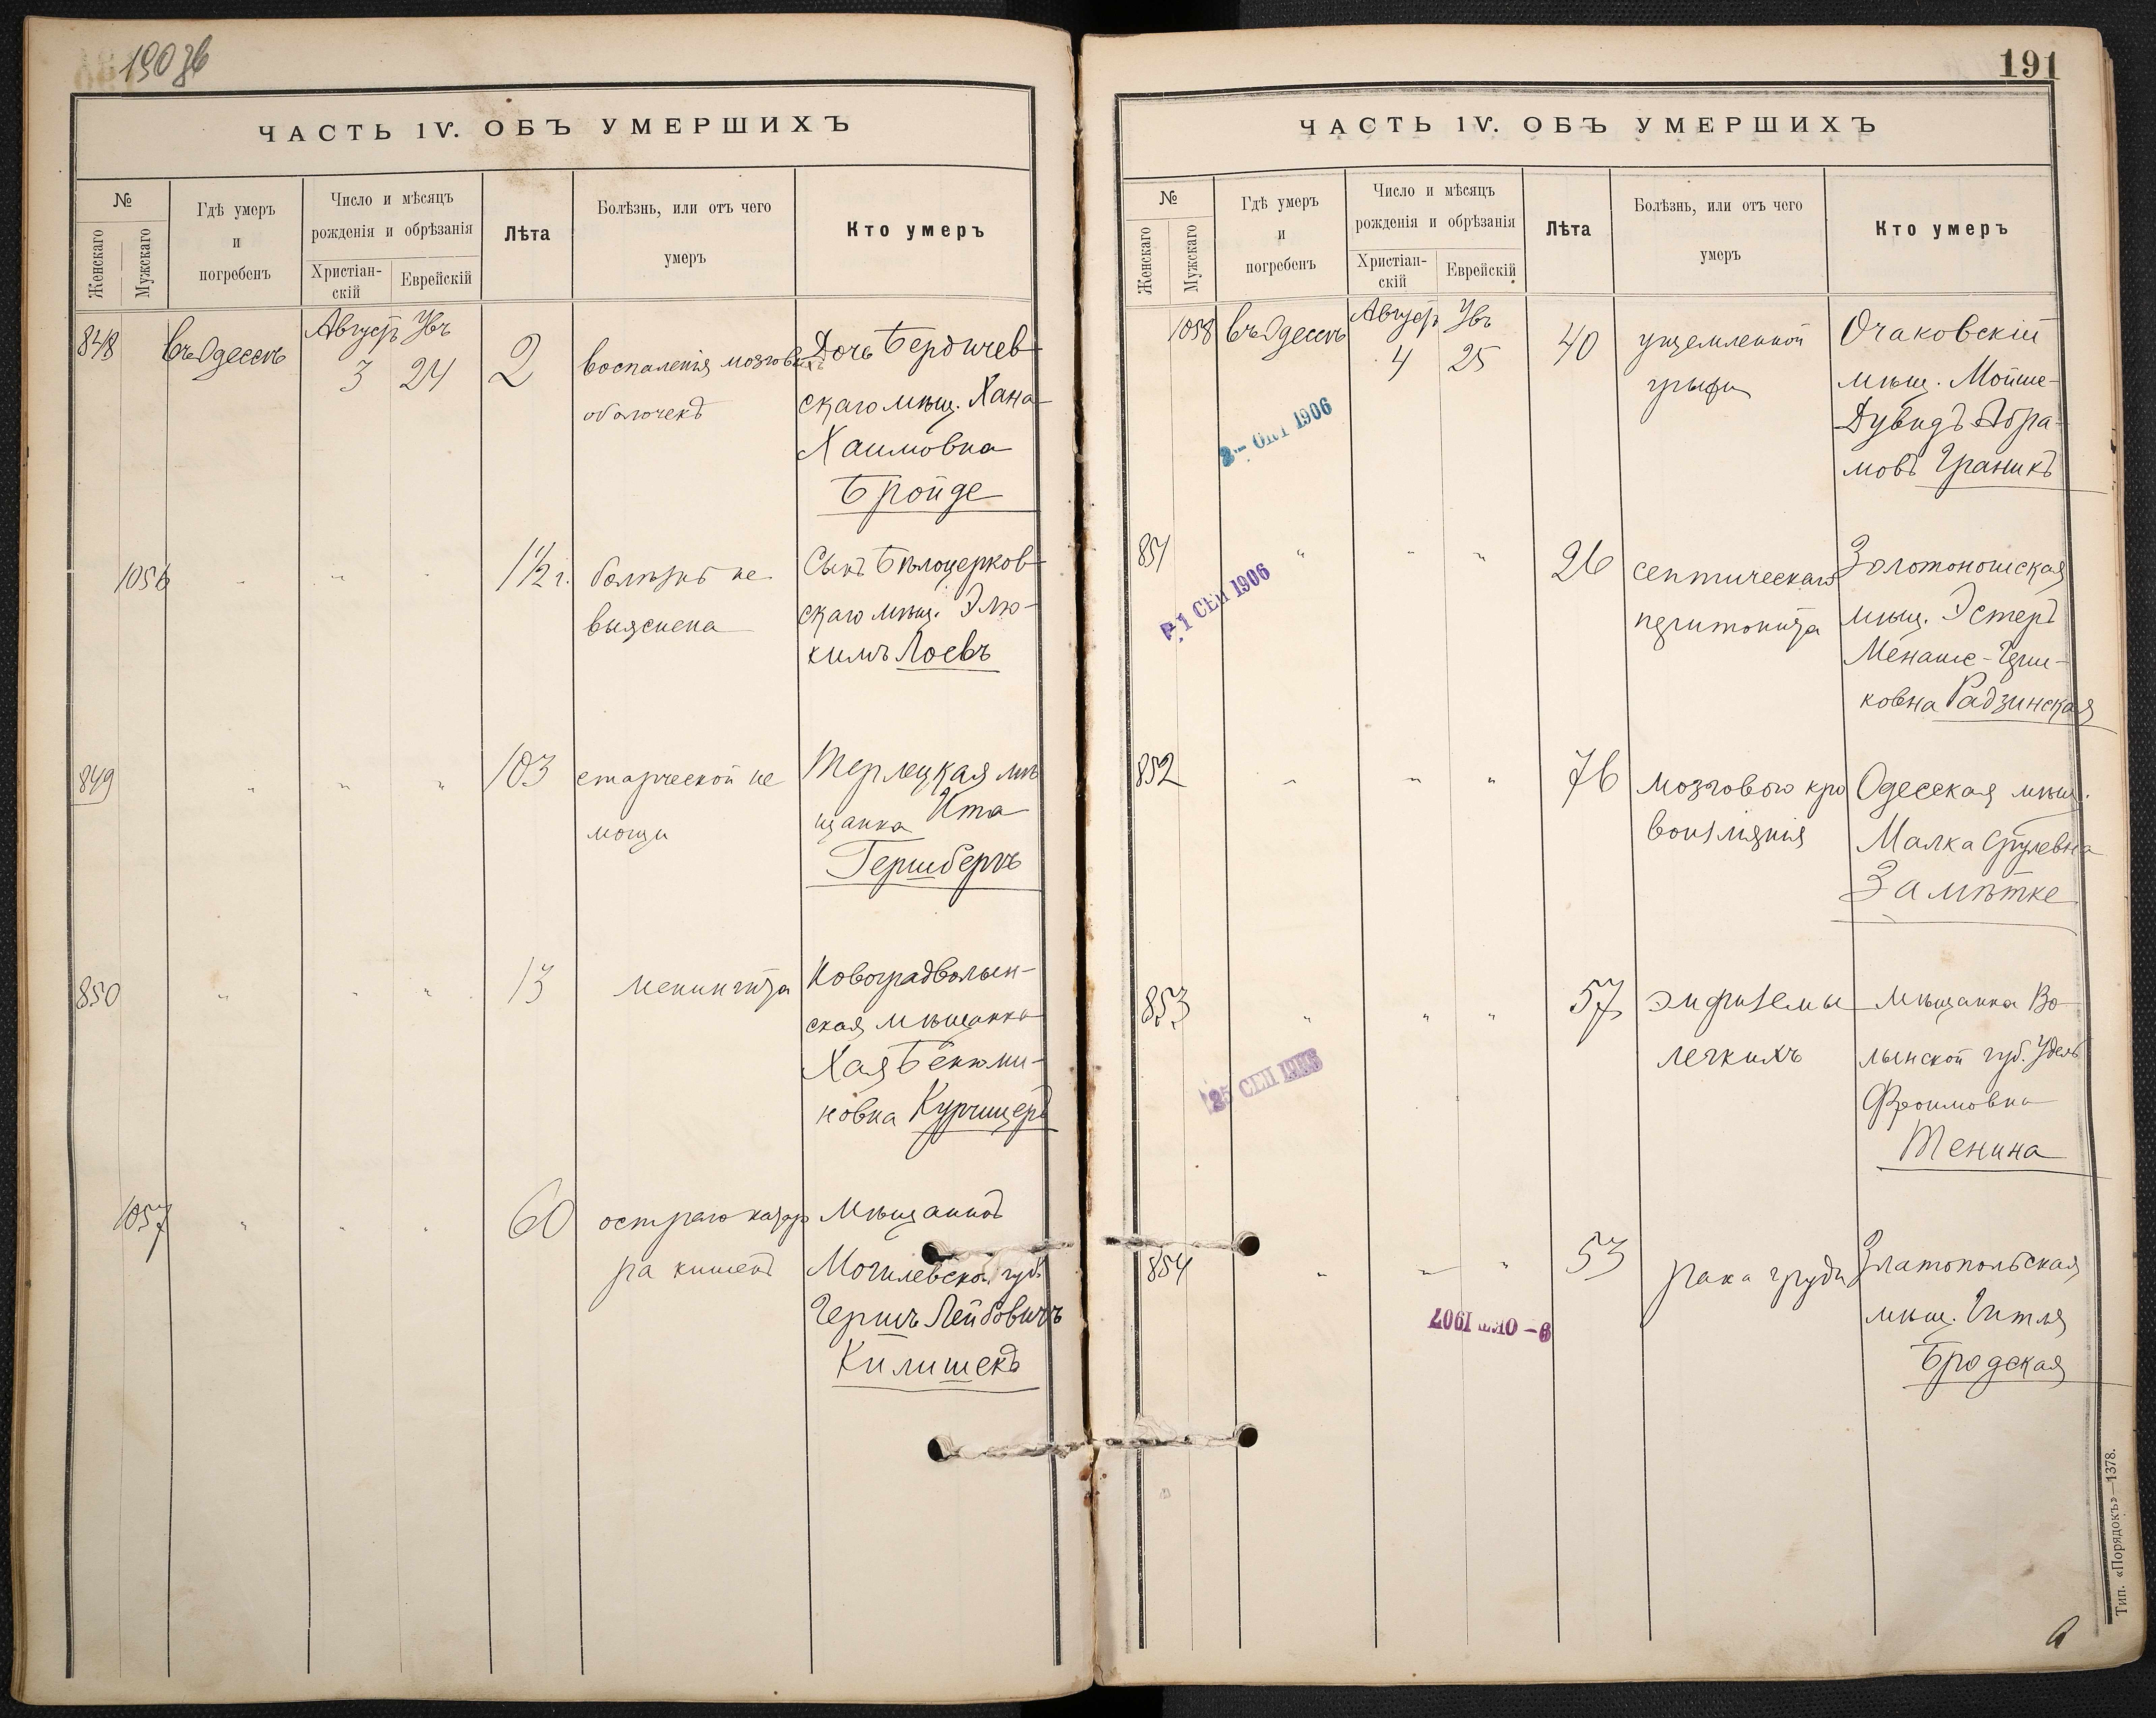 190 зв
ЧАСТЬ IV. ОБЪ УМЕРШИХЪ
№
Женскаго
Мужскаго
Гдѣ умеръ
и
погребенъ
Число и мѣсяцъ
рожденія и обрѣзанія
Христіан-
скій
Еврейскій
Лѣта
Болѣзнь, или отъ чего
умеръ
Кто умеръ
848
Въ Одессѣ
Августъ Увъ
3 24
2
воспаленія мозговыхъ
оболочекъ
Дочь Бердичев-
скаго мѣщ. Хана
Хаимовна
Бройде
1056
" " "
1 1/2 г.
болѣзнь не
выяснена
Сынъ Бѣлоцерков-
скаго мѣщ. Элю-
кимъ Лоевъ
849
" " "
103
старческой не
мощи
Терлецкая мѣ
щанка Ита
Гершбергъ
850
" " "
13
менингита
Новоградволын-
ская мѣщанка
Хая Бенюми-
новна Курчицеръ
1057
" " "
60
остраго катар
ра кишекъ
Мѣщанинъ
Могилевской губ.
Гершъ Лейбовичъ
Килишекъ
191
ЧАСТЬ IV. ОБЪ УМЕРШИХЪ
№
Женскаго
Мужскаго
Гдѣ умеръ
и
погребенъ
Число и мѣсяцъ
рожденія и обрѣзанія
Христіан-
скій
Еврейскій
Лѣта
Болѣзнь, или отъ чего
умеръ
Кто умеръ
1058
Въ Одессѣ
Августъ Увъ
4 25
40
ущемленной
грыжи
Очаковскій
мѣщ. Мойше-
Дувидъ Абра-
мовъ Граникъ
2 - ОКТ 1906
851
" " "
26
септическаго
перитонита
Золотоношская
мѣщ. Эстеръ
Менаше-Герш-
ковна Радзинская
1 СЕН 1906
852
" " "
76
мозгового кро
воизліянія
Одесская мѣщ.
Малка Срулевна
Замѣтке
853
" " "
57
эмфиземы
легкихъ
мѣщанка Во-
лынской губ. Удель
Фроимовна
Тенина
25 СЕП 1906
854
" " "
53
рака груди
Златопольская
мѣщ. Гитля
Бродская
9 - ОКТ 1907
Тип. «Порядокъ»—1378.